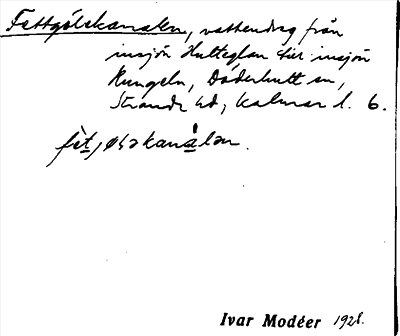 Fettgölskanalen, vattendrag från
insjön Hulteglan till insjön
Kungeln, Döderhult sn,
Stranda hd, Kalmar l. 6.
Ivar Modéer 1928.